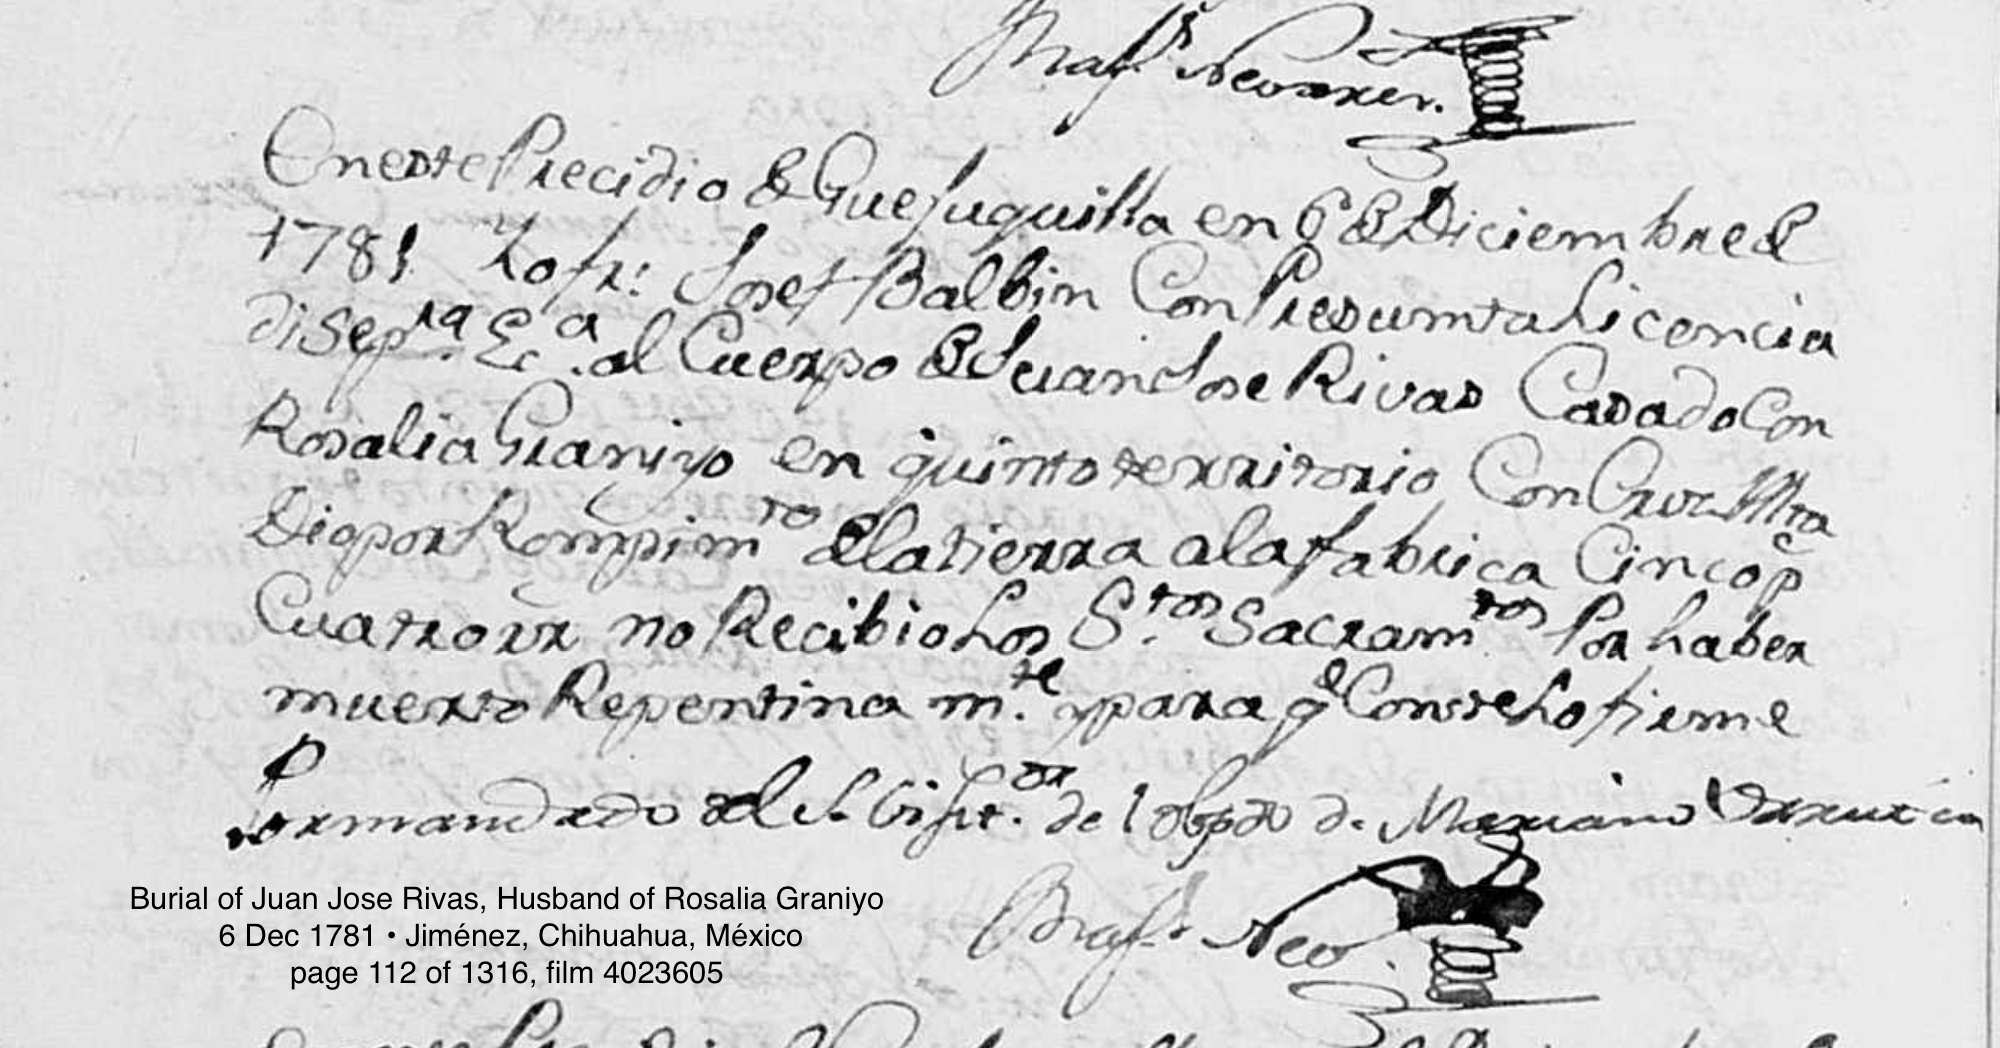 En este Precidio de Guejuquilla en 6 de Diciembre de
1781 Yo fr: Josef Balbin Con Presumta Licencia
di Sepra Eca. al Cuerpo de Juan Jose Rivas Casado Con
Rosalia Graniyo en quinto territorio Con Cruz Alta
Dio por Rompimto de la tierra a la fabrica Cinco ps
Cuatro rr no Recibio Los S.tos Sacramtos Por haber
muerto Repentina m.te y para qe Conste Lo firme
Por mandado del Sr Visit.or de l obpdo d. Mariano
Burial of Juan Jose Rivas, Husband of Rosalia Graniyo
6 Dec 1781 • Jiménez, Chihuahua, México
page 112 of 1316, film 4023605